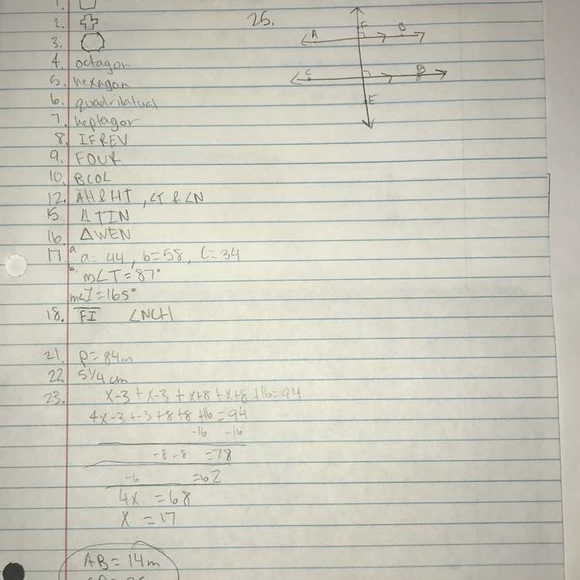 1.
2.
3.
4. octagon
5. hexagon
6. quadrilatual
7. heptagon
8. IFREV
9. FOUR
10. BCOL
12. AH & HT , ∠T & ∠N
15 ΔTIN
16. ΔWEN
17. a. a=44, b=58, C=34
b. m∠T=87°
m∠I=165°
18. FI ∠NCH
21. p=84m
22. 5 1/4 cm
23. x-3+x-3+x+8+x+8+16=94
4x-3+-3+8+8+16=94
-16 -16
-8-8 =78
-6 =62
4x =68
x =17
AB=14m
25.
A F B
C D
E